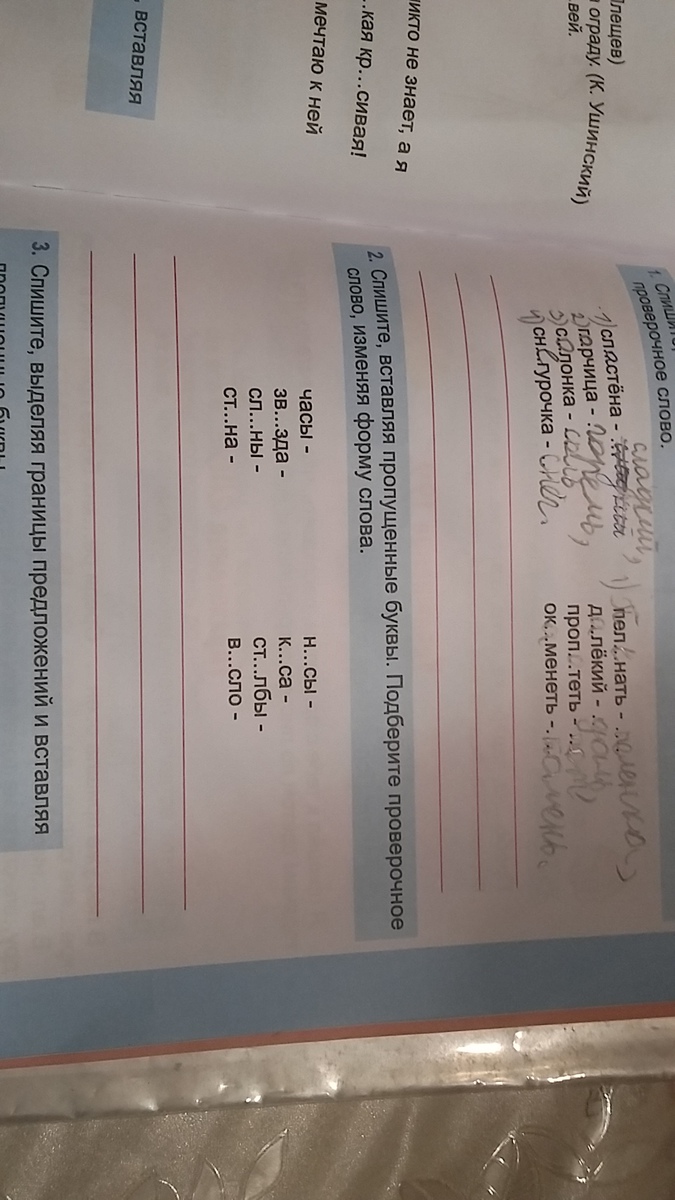 Плещев)
ограду. (К. Ушинский)
вей.
никто не знает, а я
...кая кр...сивая!
мечтаю к ней
, вставляя
1. Спишите,
проверочное слово.
1) сластёна - сладкий,
2) гарчица - горечь,
3) салонка - соль
4) снегурочка - снег.
1) пел...нать - пеленка,
д...лёкий - даль,
проп...теть - ...
ок...менеть - камень.
2. Спишите, вставляя пропущенные буквы. Подберите проверочное
слово, изменяя форму слова.
часы -
зв...зда -
сл...ны -
ст...на -
н...сы -
к...са -
ст...лбы -
в...сло -
3. Спишите, выделяя границы предложений и вставляя
пропущенные буквы